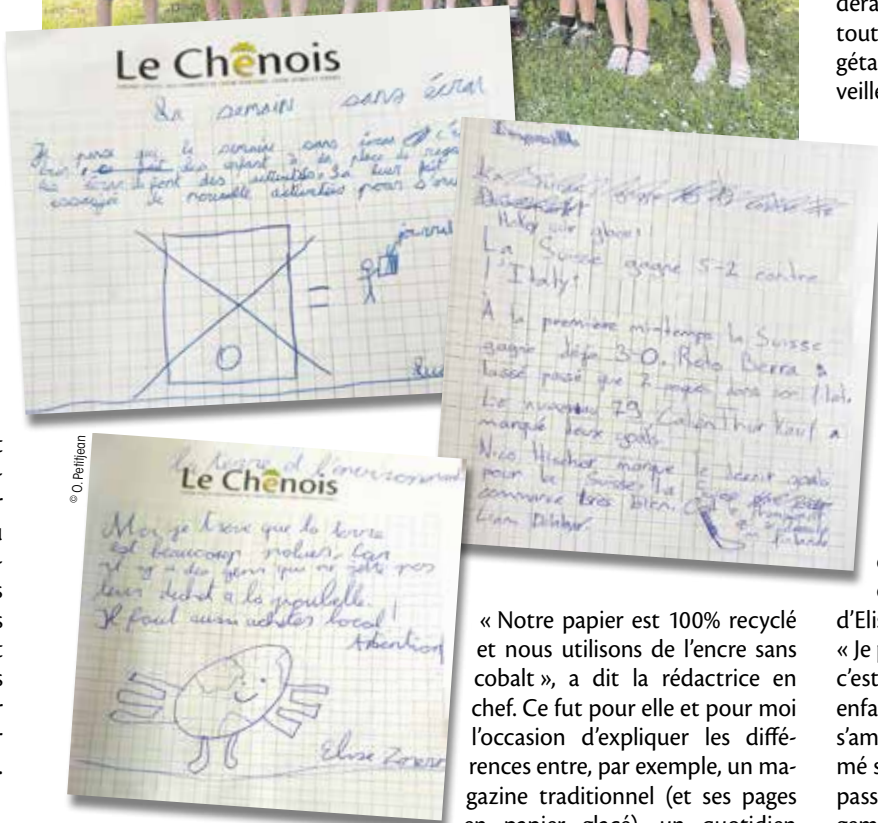 déra
tout
géta
veille
Le Chênois
La semain sans écran
Je pense que la semaine sans écran c'e
bien, des enfant à la place de rega
les écran font des activités. Sa leur fait
essayer de nouvelle activitées pour s'am
journal
=
Hockey sur glace!
La Suisse gagne 5-2 contre
l'Italy!
À la première mi-temps la Suisse
gagne déja 3-0. Reto Berra a
laissé passé que 2 dans son filet.
Le numéro 79, Calvin Thürkauf a
marqué deux goals.
Nico Hischier marque le dernié goals
pour la Suisse. La Suisse
commance très bien.
Liam
en Finlande
© O. Petitjean
la terre et l'environnement
Le Chênois
Moi je trouve que la terre
est beaucoup poluer. Car
il y a des gens qui ne jette pas
leur dechet a la poubelle.
Il faut aussi acheter local!
Attention
Elise
« Notre papier est 100% recyclé
et nous utilisons de l'encre sans
cobalt », a dit la rédactrice en
chef. Ce fut pour elle et pour moi
l'occasion d'expliquer les diffé-
rences entre, par exemple, un ma-
gazine traditionnel (et ses pages
en papier glacé), un quotidien
d'Elis
« Je p
c'est
enfa
s'am
mé s
pass
gem